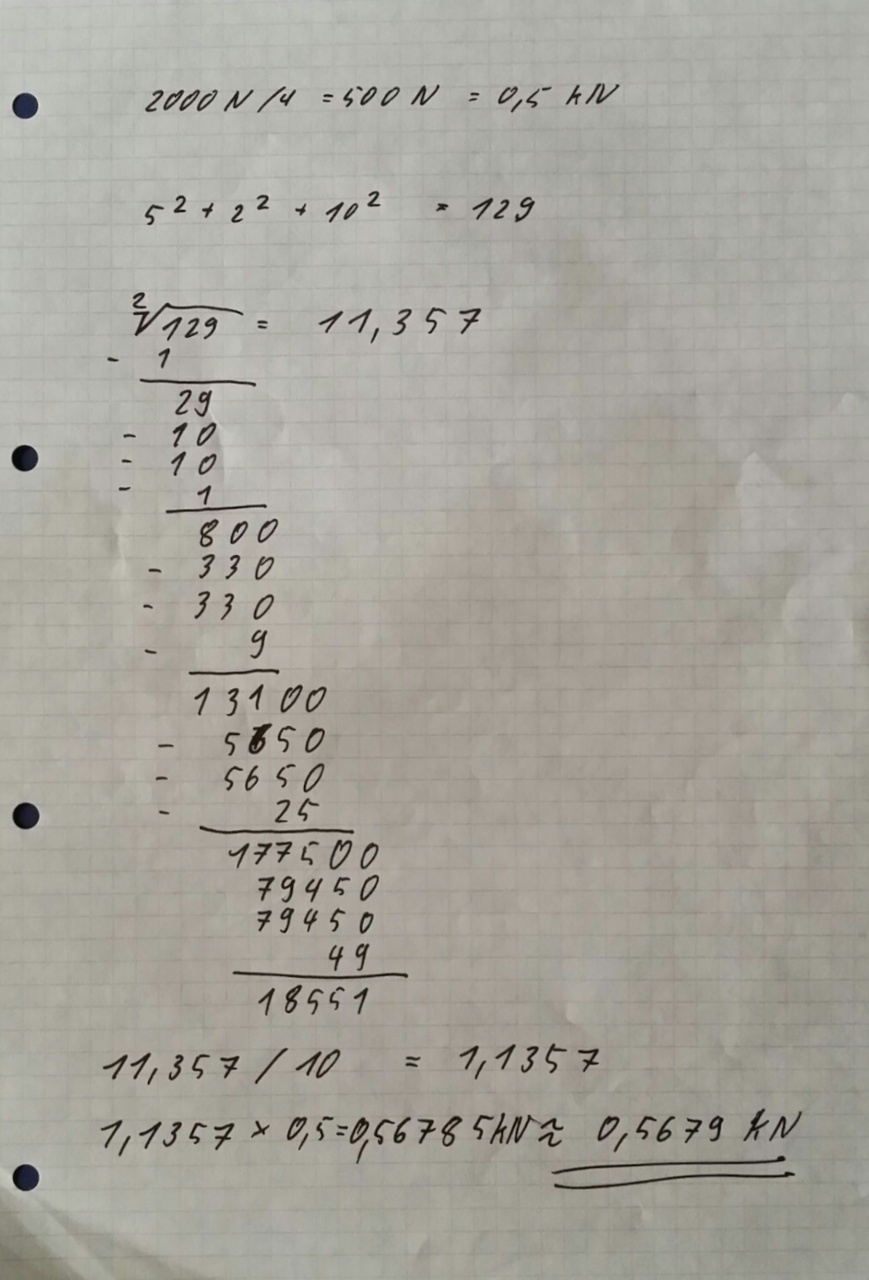 2000 N / 4 = 500 N = 0,5 kN
5² + 2² + 10² = 129
²√129 = 11,357
- 1
29
- 10
- 10
- 1
800
- 330
- 330
- 9
13100
- 5650
- 5650
- 25
177500
79450
79450
49
18551
11,357 / 10 = 1,1357
1,1357 × 0,5 = 0,56785 kN ≈ 0,5679 kN